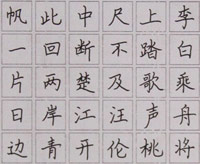 帆此中尺上李
一回断不踏白
片两楚及歌乘
日岸江汪声舟
边青开伦桃将